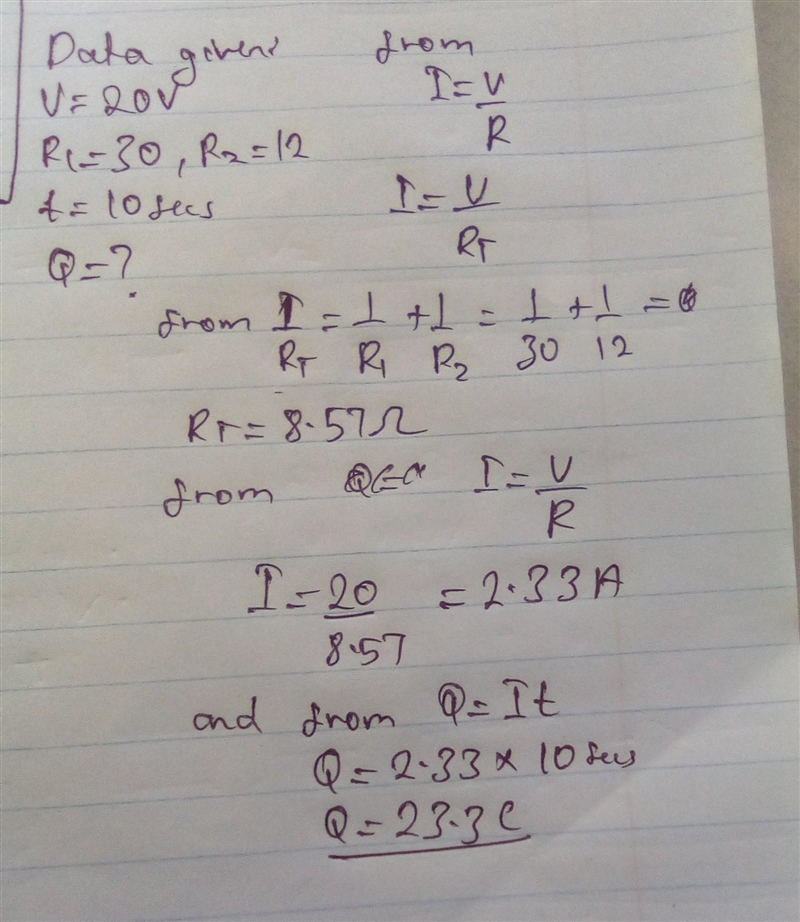 Data given:
V = 20V
R1 = 30, R2 = 12
t = 10 secs
Q = ?
from
I = V/R
I = V/RT
from 1/RT = 1/R1 + 1/R2 = 1/30 + 1/12 =
RT = 8.57Ω
from I = V/R
I = 20/8.57 = 2.33A
and from Q = It
Q = 2.33 × 10 secs
Q = 23.3 C